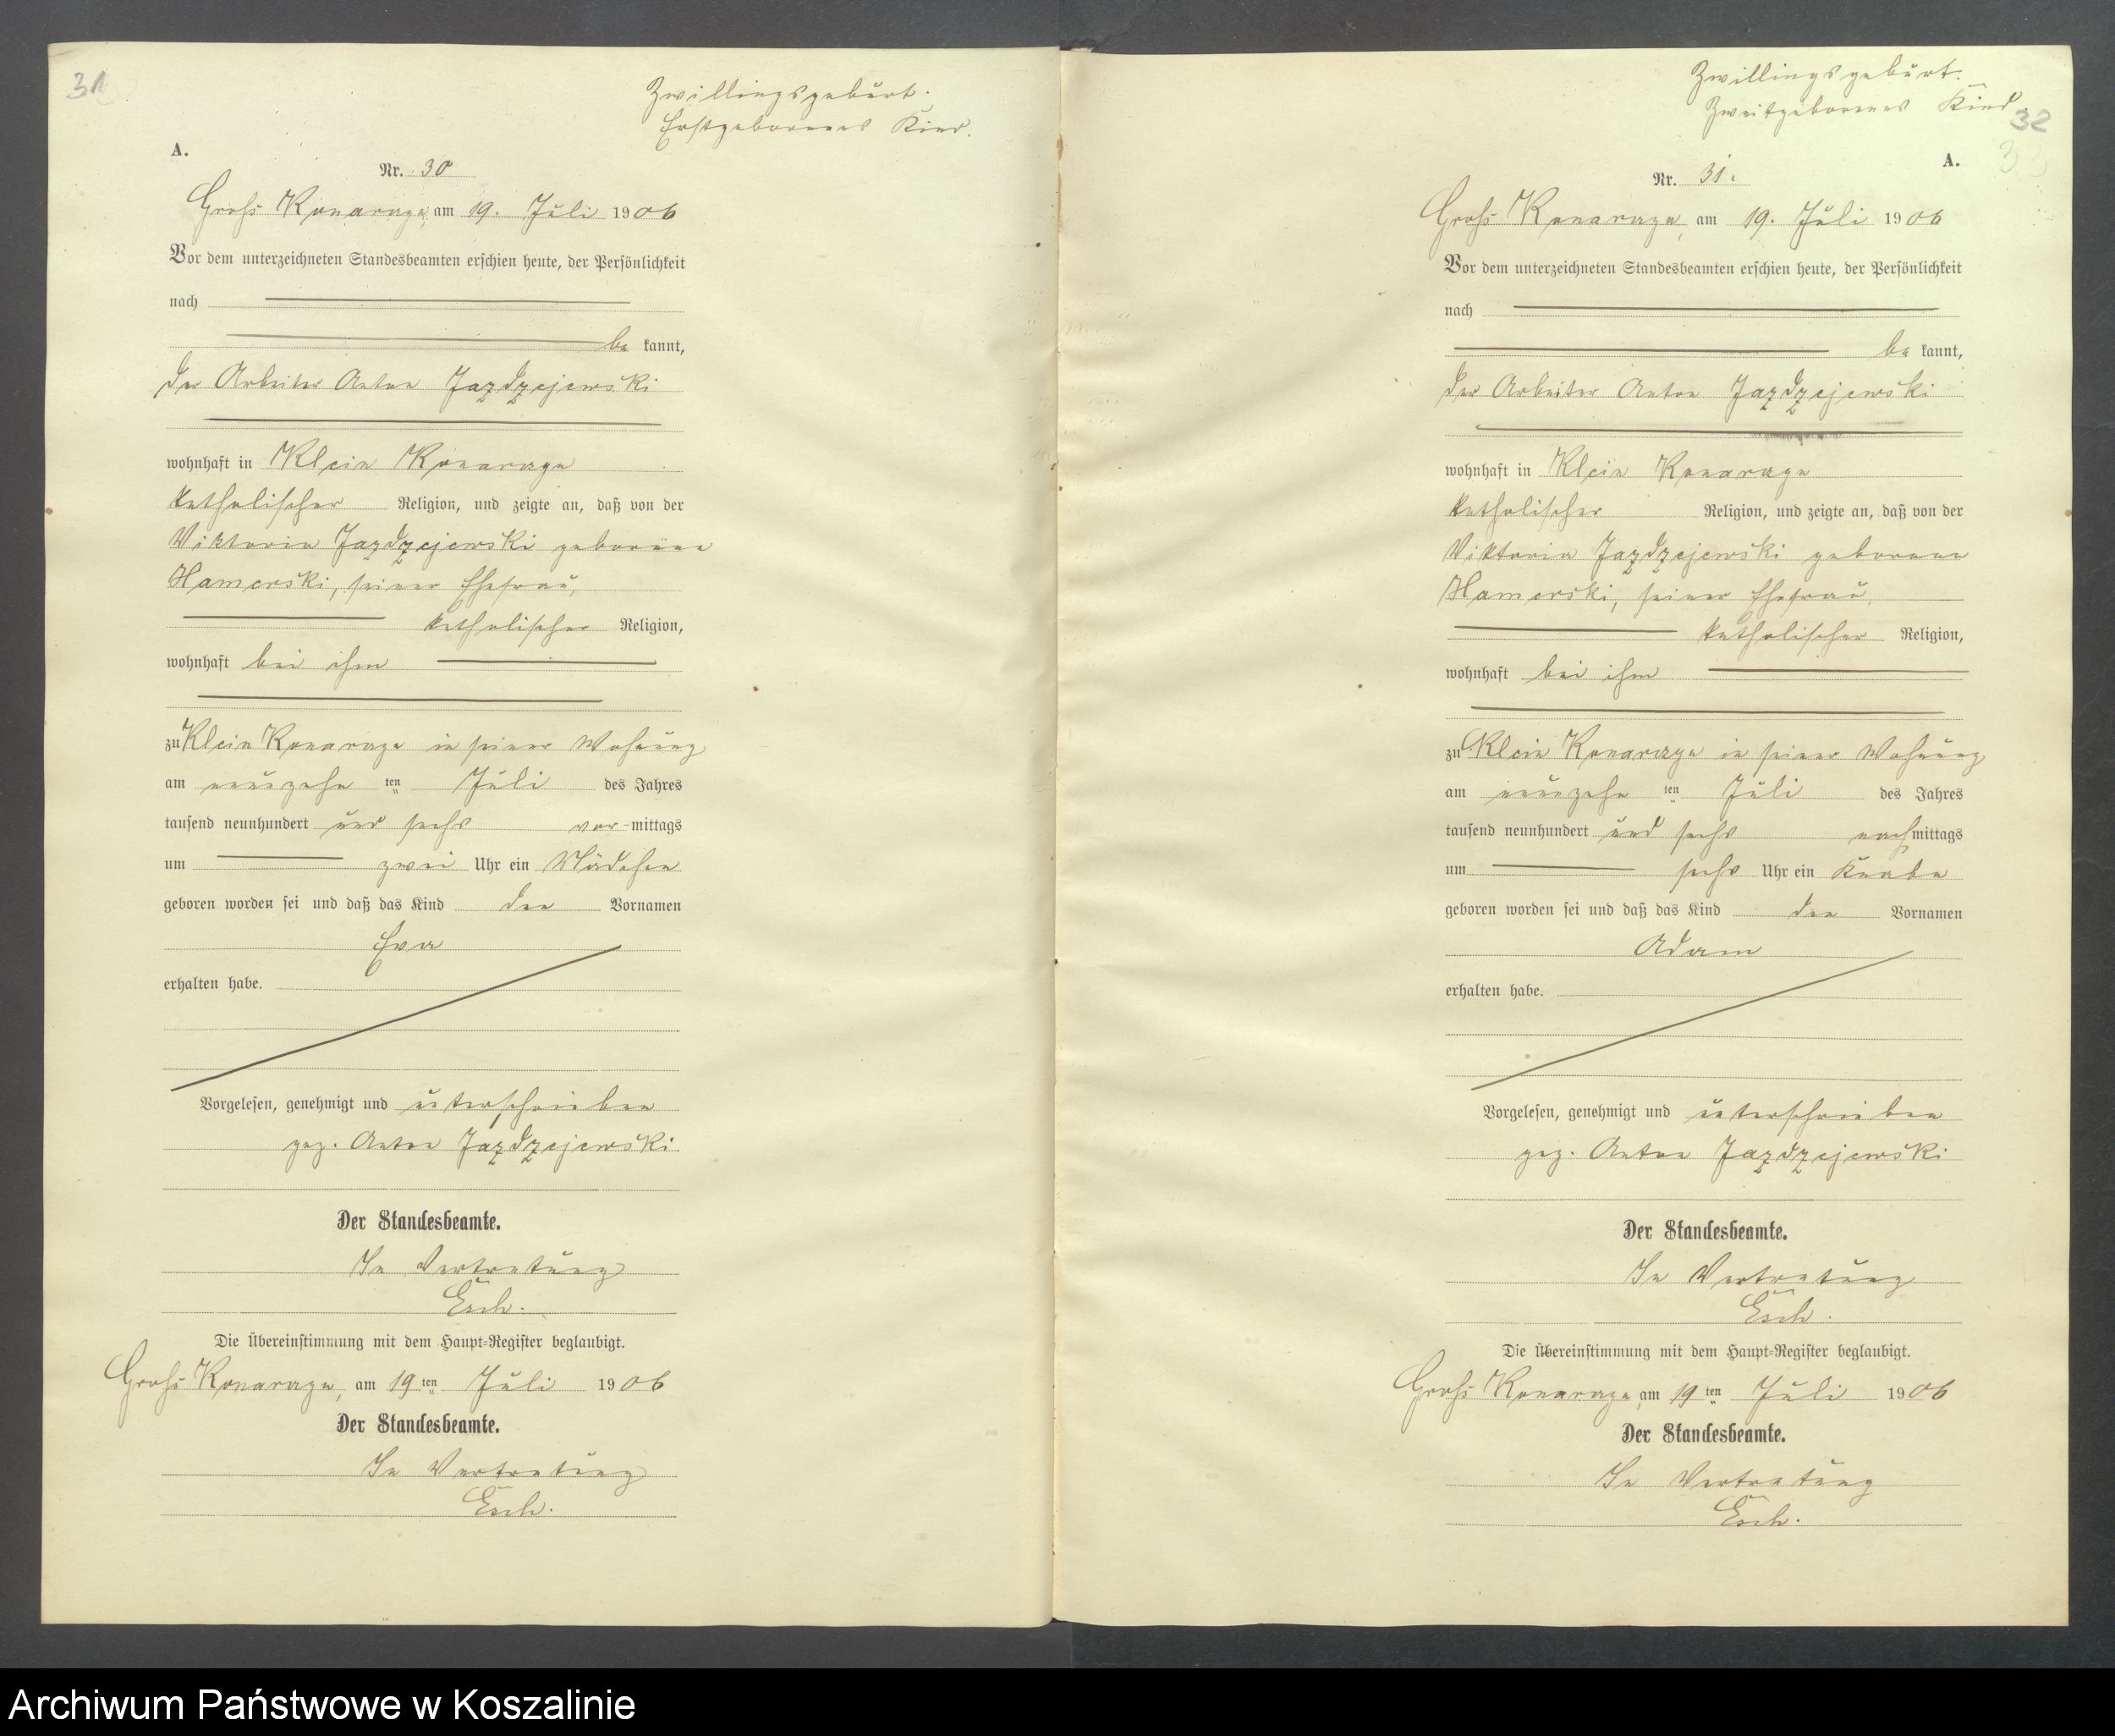 31
Zwillingsgeburt.
Erstgeborenes Kind.
A.
Nr. 30
Groß Konarzyn, am 19. Juli 1906
Vor dem unterzeichneten Standesbeamten erschien heute, der Persönlichkeit
nach
be kannt,
der Arbeiter Anton Jazdzejewski
wohnhaft in Klein Konarzyn
katholischer Religion, und zeigte an, daß von der
Viktoria Jazdzejewski geborene
Hamerski, seiner Ehefrau,
katholischer Religion,
wohnhaft bei ihm
zu Klein Konarzyn in seiner Wohnung
am neunzehn ten Juli des Jahres
tausend neunhundert und sechs vor-mittags
um zwei Uhr ein Mädchen
geboren worden sei und daß das Kind den Vornamen
Eva
erhalten habe.
Vorgelesen, genehmigt und unterschrieben
gez. Anton Jazdzejewski
Der Standesbeamte.
In Vertretung
Esch.
Die Übereinstimmung mit dem Haupt-Register beglaubigt.
Groß Konarzyn, am 19ten Juli 1906
Der Standesbeamte.
In Vertretung
Esch.
Zwillingsgeburt.
Zweitgeborenes Kind
32
A.
Nr. 31.
Groß Konarzyn, am 19. Juli 1906
Vor dem unterzeichneten Standesbeamten erschien heute, der Persönlichkeit
nach
be kannt,
der Arbeiter Anton Jazdzejewski
wohnhaft in Klein Konarzyn
katholischer Religion, und zeigte an, daß von der
Viktoria Jazdzejewski geborene
Hamerski, seiner Ehefrau,
katholischer Religion,
wohnhaft bei ihm
zu Klein Konarzyn in seiner Wohnung
am neunzehn ten Juli des Jahres
tausend neunhundert und sechs nachmittags
um sechs Uhr ein Knabe
geboren worden sei und daß das Kind den Vornamen
Adam
erhalten habe.
Vorgelesen, genehmigt und unterschrieben
gez. Anton Jazdzejewski
Der Standesbeamte.
In Vertretung
Esch.
Die Übereinstimmung mit dem Haupt-Register beglaubigt.
Groß Konarzyn, am 19ten Juli 1906
Der Standesbeamte.
In Vertretung
Esch.
Archiwum Państwowe w Koszalinie